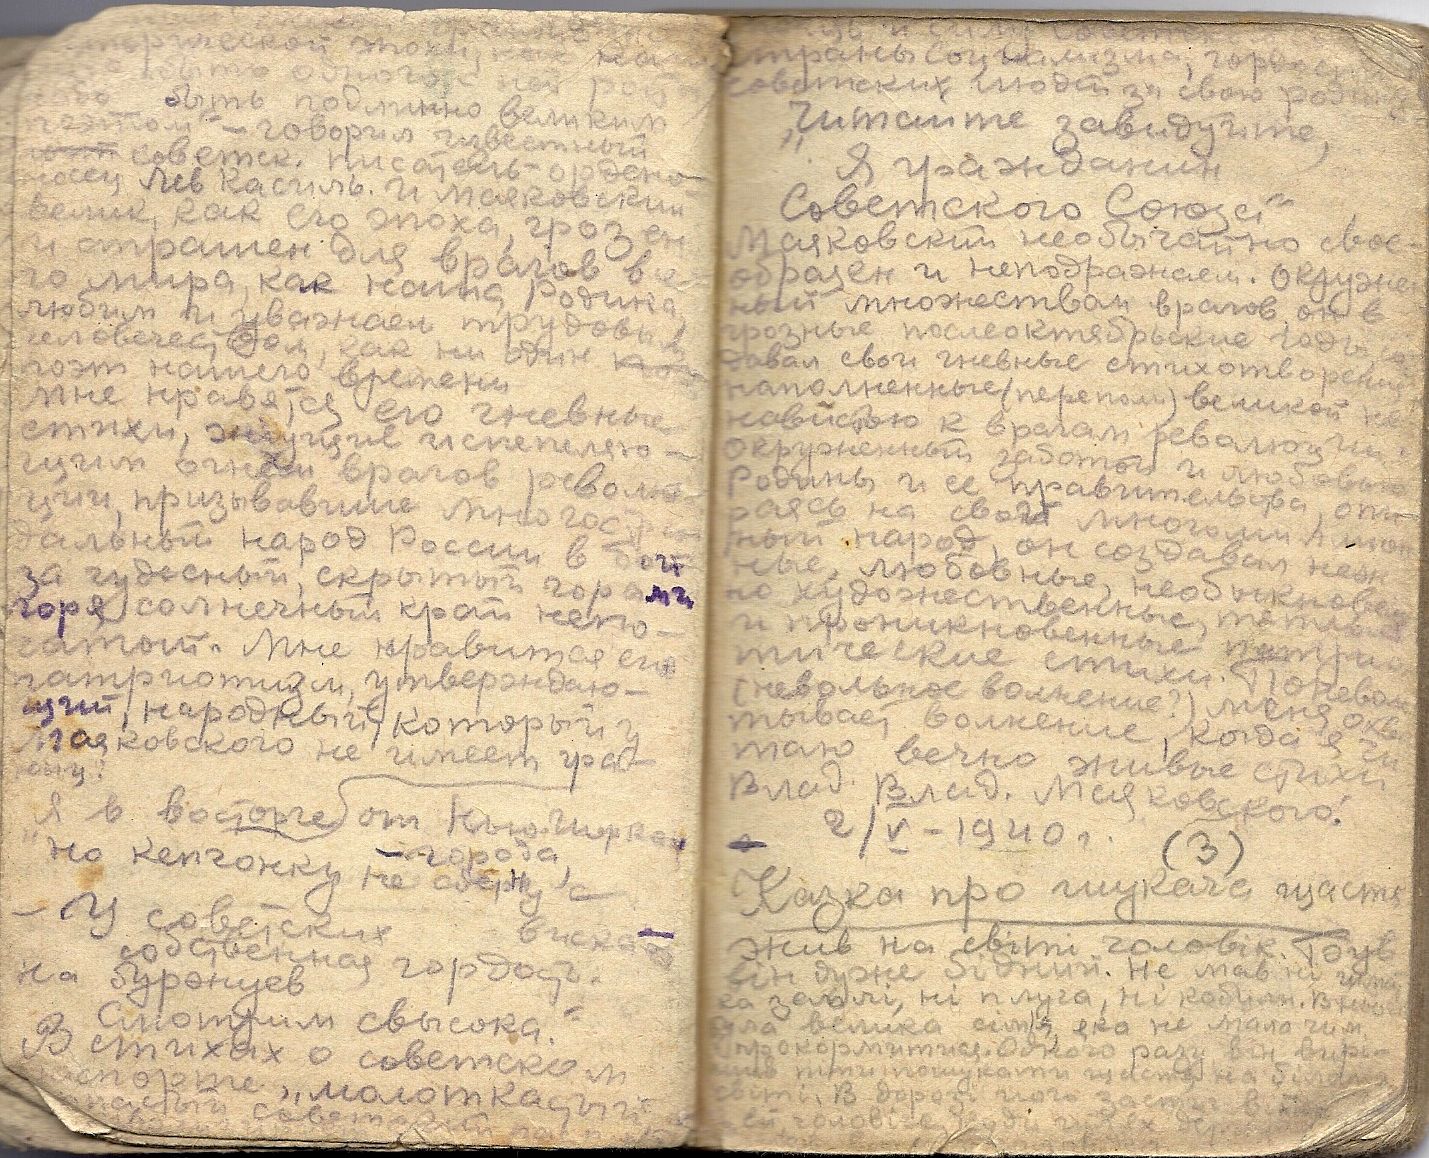 эпохи, как наша
быть
быть подлинно великим
поэтом" – говорил известный
советск. писатель-ордено-
носец Лев Кассиль. И Маяковский
велик, как его эпоха, грозен
и страшен для врагов все-
го мира, как наша Родина,
любим и уважаем трудовым
человечеством, как ни один
поэт нашего времени
Мне нравятся его гневные
стихи, жгущие испепеляю-
щим огнем врагов револю-
ции, призывавшие многостра-
дальный народ России в бой
за чудесный, скрытый горами
горя солнечный край непо-
чатый. Мне нравится его
патриотизм, утверждаю-
щий, народный, который у
Маяковского не имеет гра-
ниц:
Я в восторге от Нью-Йорка
города,
"но кепчонку не сдерну с
виска
– У советских
собственная гордость.
на буржуев
Смотрим свысока."
В стихах о советском
паспорте „молоткастый
советский
страны социализма, гордость
советских людей за свою родину
„Читайте завидуйте,
Я гражданин
Советского Союза"
Маяковский необычайно свое-
образен и неподражаем. Окружен-
ный множеством врагов, он в
грозные послеоктябрьские годы
давал свои гневные стихотворения
наполненные (перепол) великой не-
навистью к врагам революции.
Окруженный заботой и любовью
Родины и ее правительства, опи-
раясь на свой многомиллион-
ный народ, он создавал неж-
ные, любовные, необыкновен-
но художественные,
и проникновенные патрио-
тические стихи. Поневоле
(невольное волнение?) меня охва-
тывает волнение, когда я чи-
таю вечно живые стихи
Влад. Влад. Маяковского!
2/V – 1940 г.
(3)
Казка про шукача щастя
Жив на світі чоловік. Був
він дуже бідний. Не мав ні
ка землі, ні плуга, ні кобили. В нього
була велика сім'я, яка не мала чим
прокормитися. Одного разу він вирі-
шив іти пошукати щастя на білому
світі. В дорозі його застиг